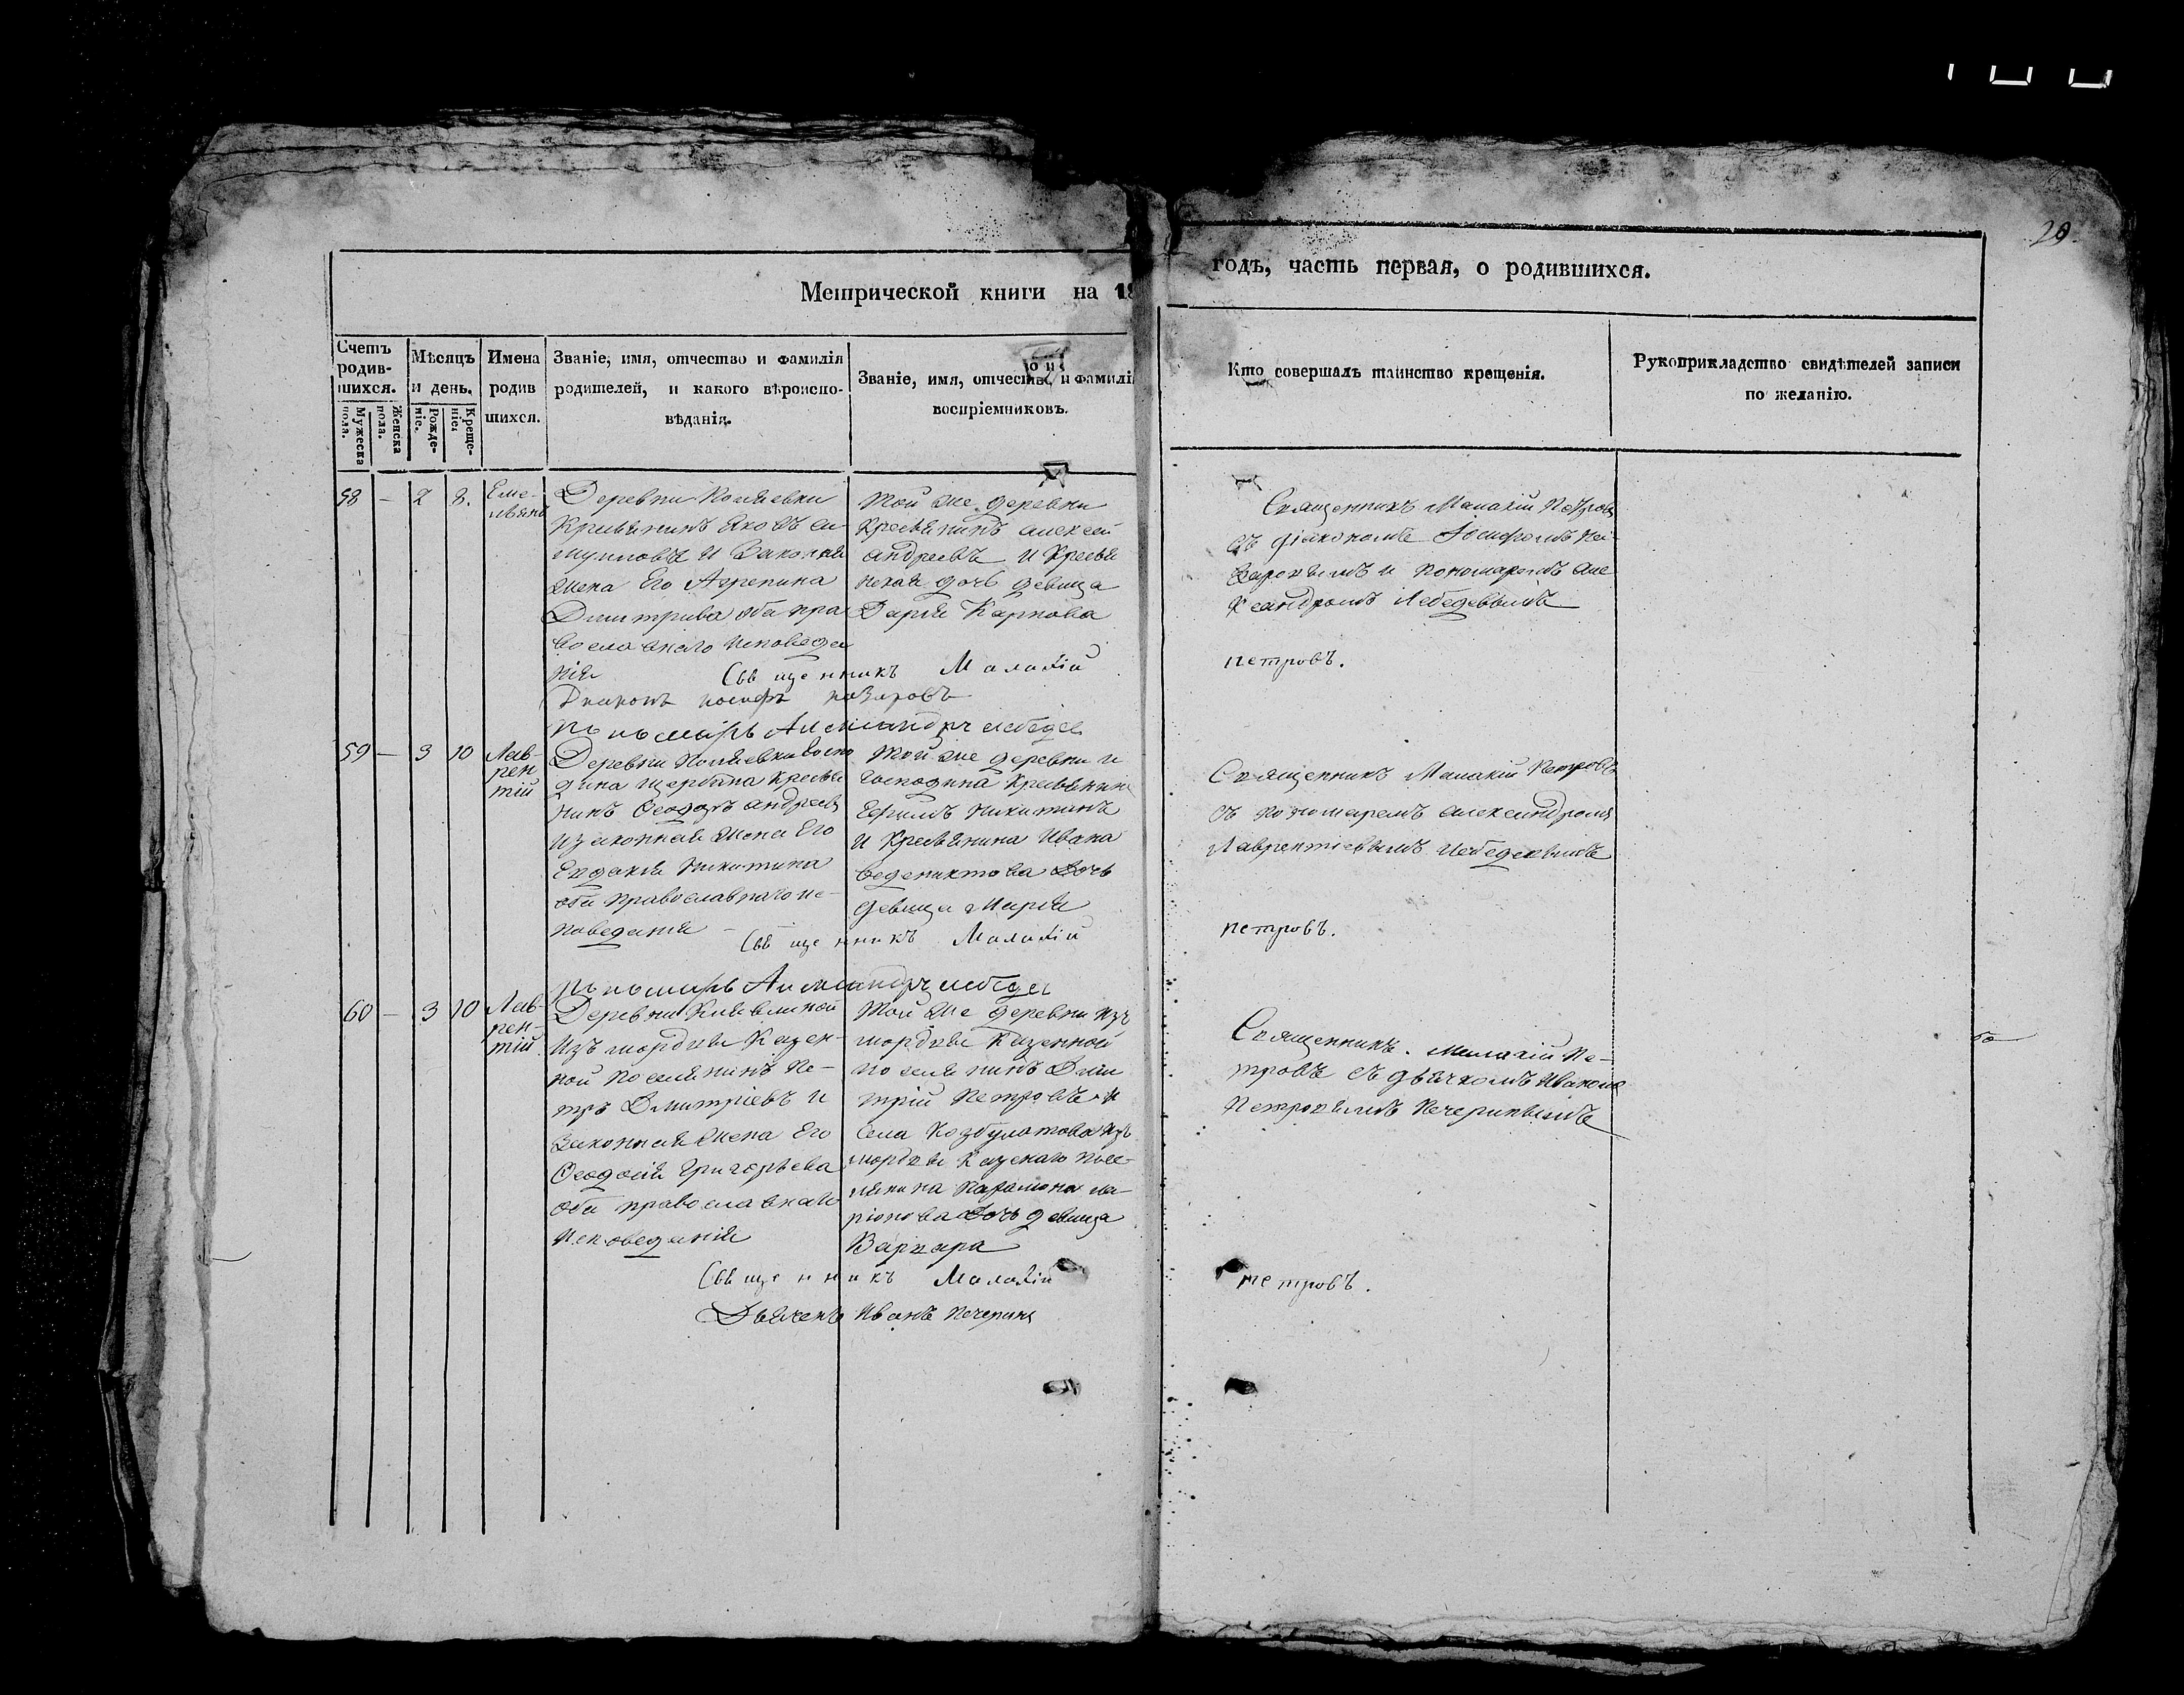 29
Метрической книги на 18
годъ, часть первая, о родившихся.
Счетъ родив-шихся.
Мужеска пола.
Женска пола.
Мѣсяцъ и день.
Рожде-ніе.
Креще-ніе.
Имена родив шихся.
Званіе, имя, отчество и фамилія
родителей, и какого вѣроиспо-
вѣданія.
Званіе, имя, отчество и фамилі
воспріемниковъ.
Кто совершалъ таинство крещенія.
Рукоприкладство свидѣтелей записи
по желанію.
58 – 2 8. Еме-
льянъ
Деревни
Крестьянинъ Яковъ
и Законная
жена Его Агрепина
Дмитрива оба пра
вославнаго исповеда
нія
той же деревни
Крестьянинъ алексей
андреевъ и Крестья
нская дочь девица
Дарья Карпова
Священникъ Малахій Петровъ
съ діакономъ Іосифомъ
и пономаремъ Але
ксандромъ Лебедевымъ
Священникъ Малахій
петровъ.
Диаконъ иосифъ назаровъ
пономарь Александръ лебеде
59 – 3 10 Лав-
рен
тій
Деревни Госпо
дина Щербина Крестья
нинъ Феодоръ андреевъ
и законная жена Его
Евдокия Никитина
оба православнаго ис-
поведания
той же деревни и
Господина Крестьянинъ
Ефимъ Никитинъ
и Крестьянина Ивана
Ведениктова дочь
девица Марья
Священникъ Малахій Петровъ
съ пономаремъ александромъ
Лаврентіевымъ Лебедевымъ
Священникъ Малахій
петровъ.
пономарь Александръ лебеде
60 – 3 10 Лав-
рен-
тій
Деревни
изъ мордвы Казен-
ной поселянинъ Пе-
тръ Дмитріевъ и
Законная жена Его
Феодосия Григорьева
оба православнаго
исповеданія
той же деревни изъ
мордвы Казенной
поселянинъ Дми
трій Петровъ и
села Козбулатова изъ
мордвы Казенаго посе-
лянина Парамона ла-
ріонова дочь девица
Варвара
Священникъ. Малахій Пе-
тровъ съ дьячкомъ Иваномъ
Петровымъ Печеринымъ
60
Священникъ Малахій
петровъ.
Дьячекъ Иванъ Печеринъ